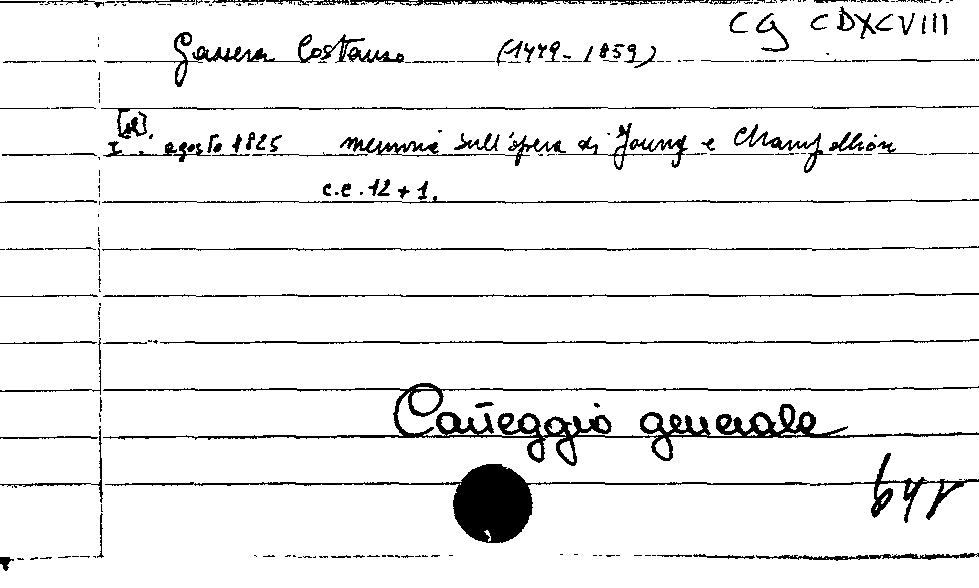 CG CDXCVIII
Gazzera Costanzo (1779-1859)
[M]
I. agosto 1825 memoria sull'opera di Young e Champollion
c.c. 12 + 1.
Carteggio generale